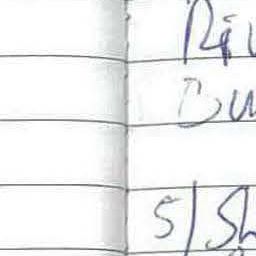 Ri
Bu
5/Sh